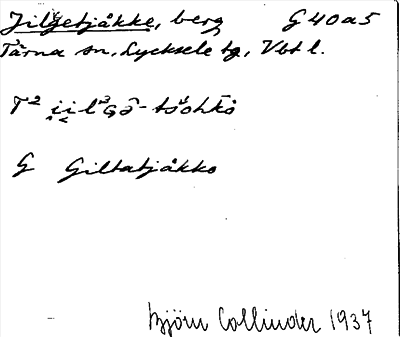 Jilgetjåkke, berg G 40 a 5
Tärna sn, Lycksele tg, Vbt l.
G Giltatjåkko
Björn Collinder 1937